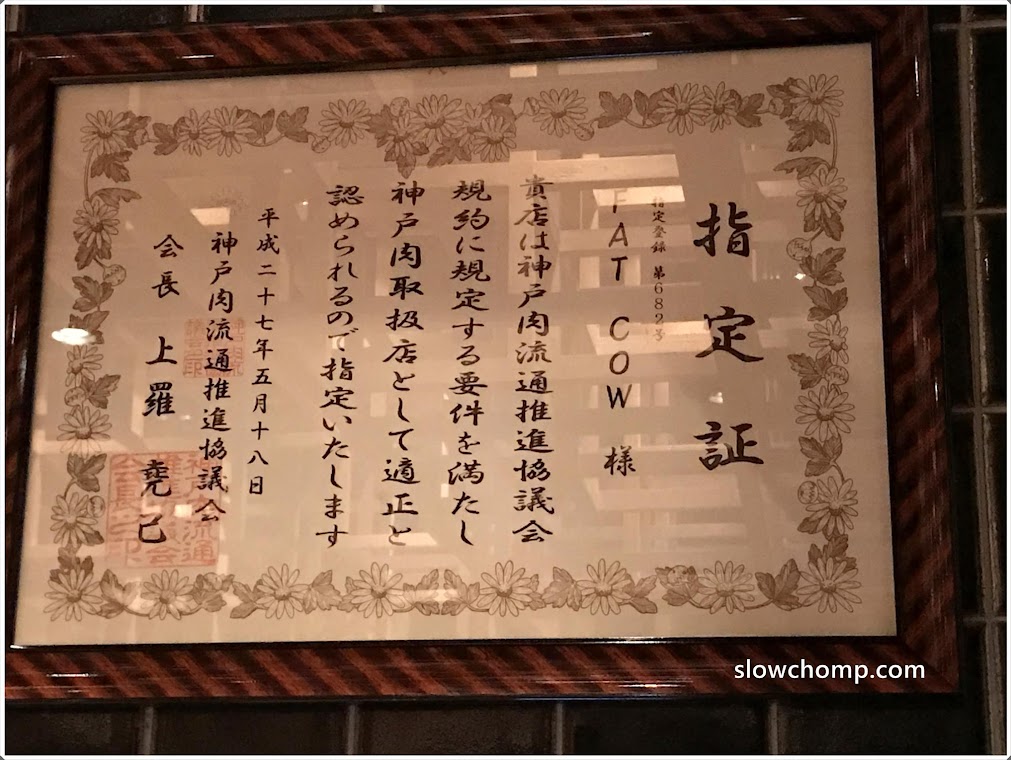 指定証
指定登録 第682号
FAT COW 様
貴店は神戸肉流通推進協議会
規約に規定する要件を満たし
神戸肉取扱店として適正と
認められるので指定いたします
平成二十七年五月十八日
神戸肉流通推進協議会
会長 上羅 堯己
slowchomp.com